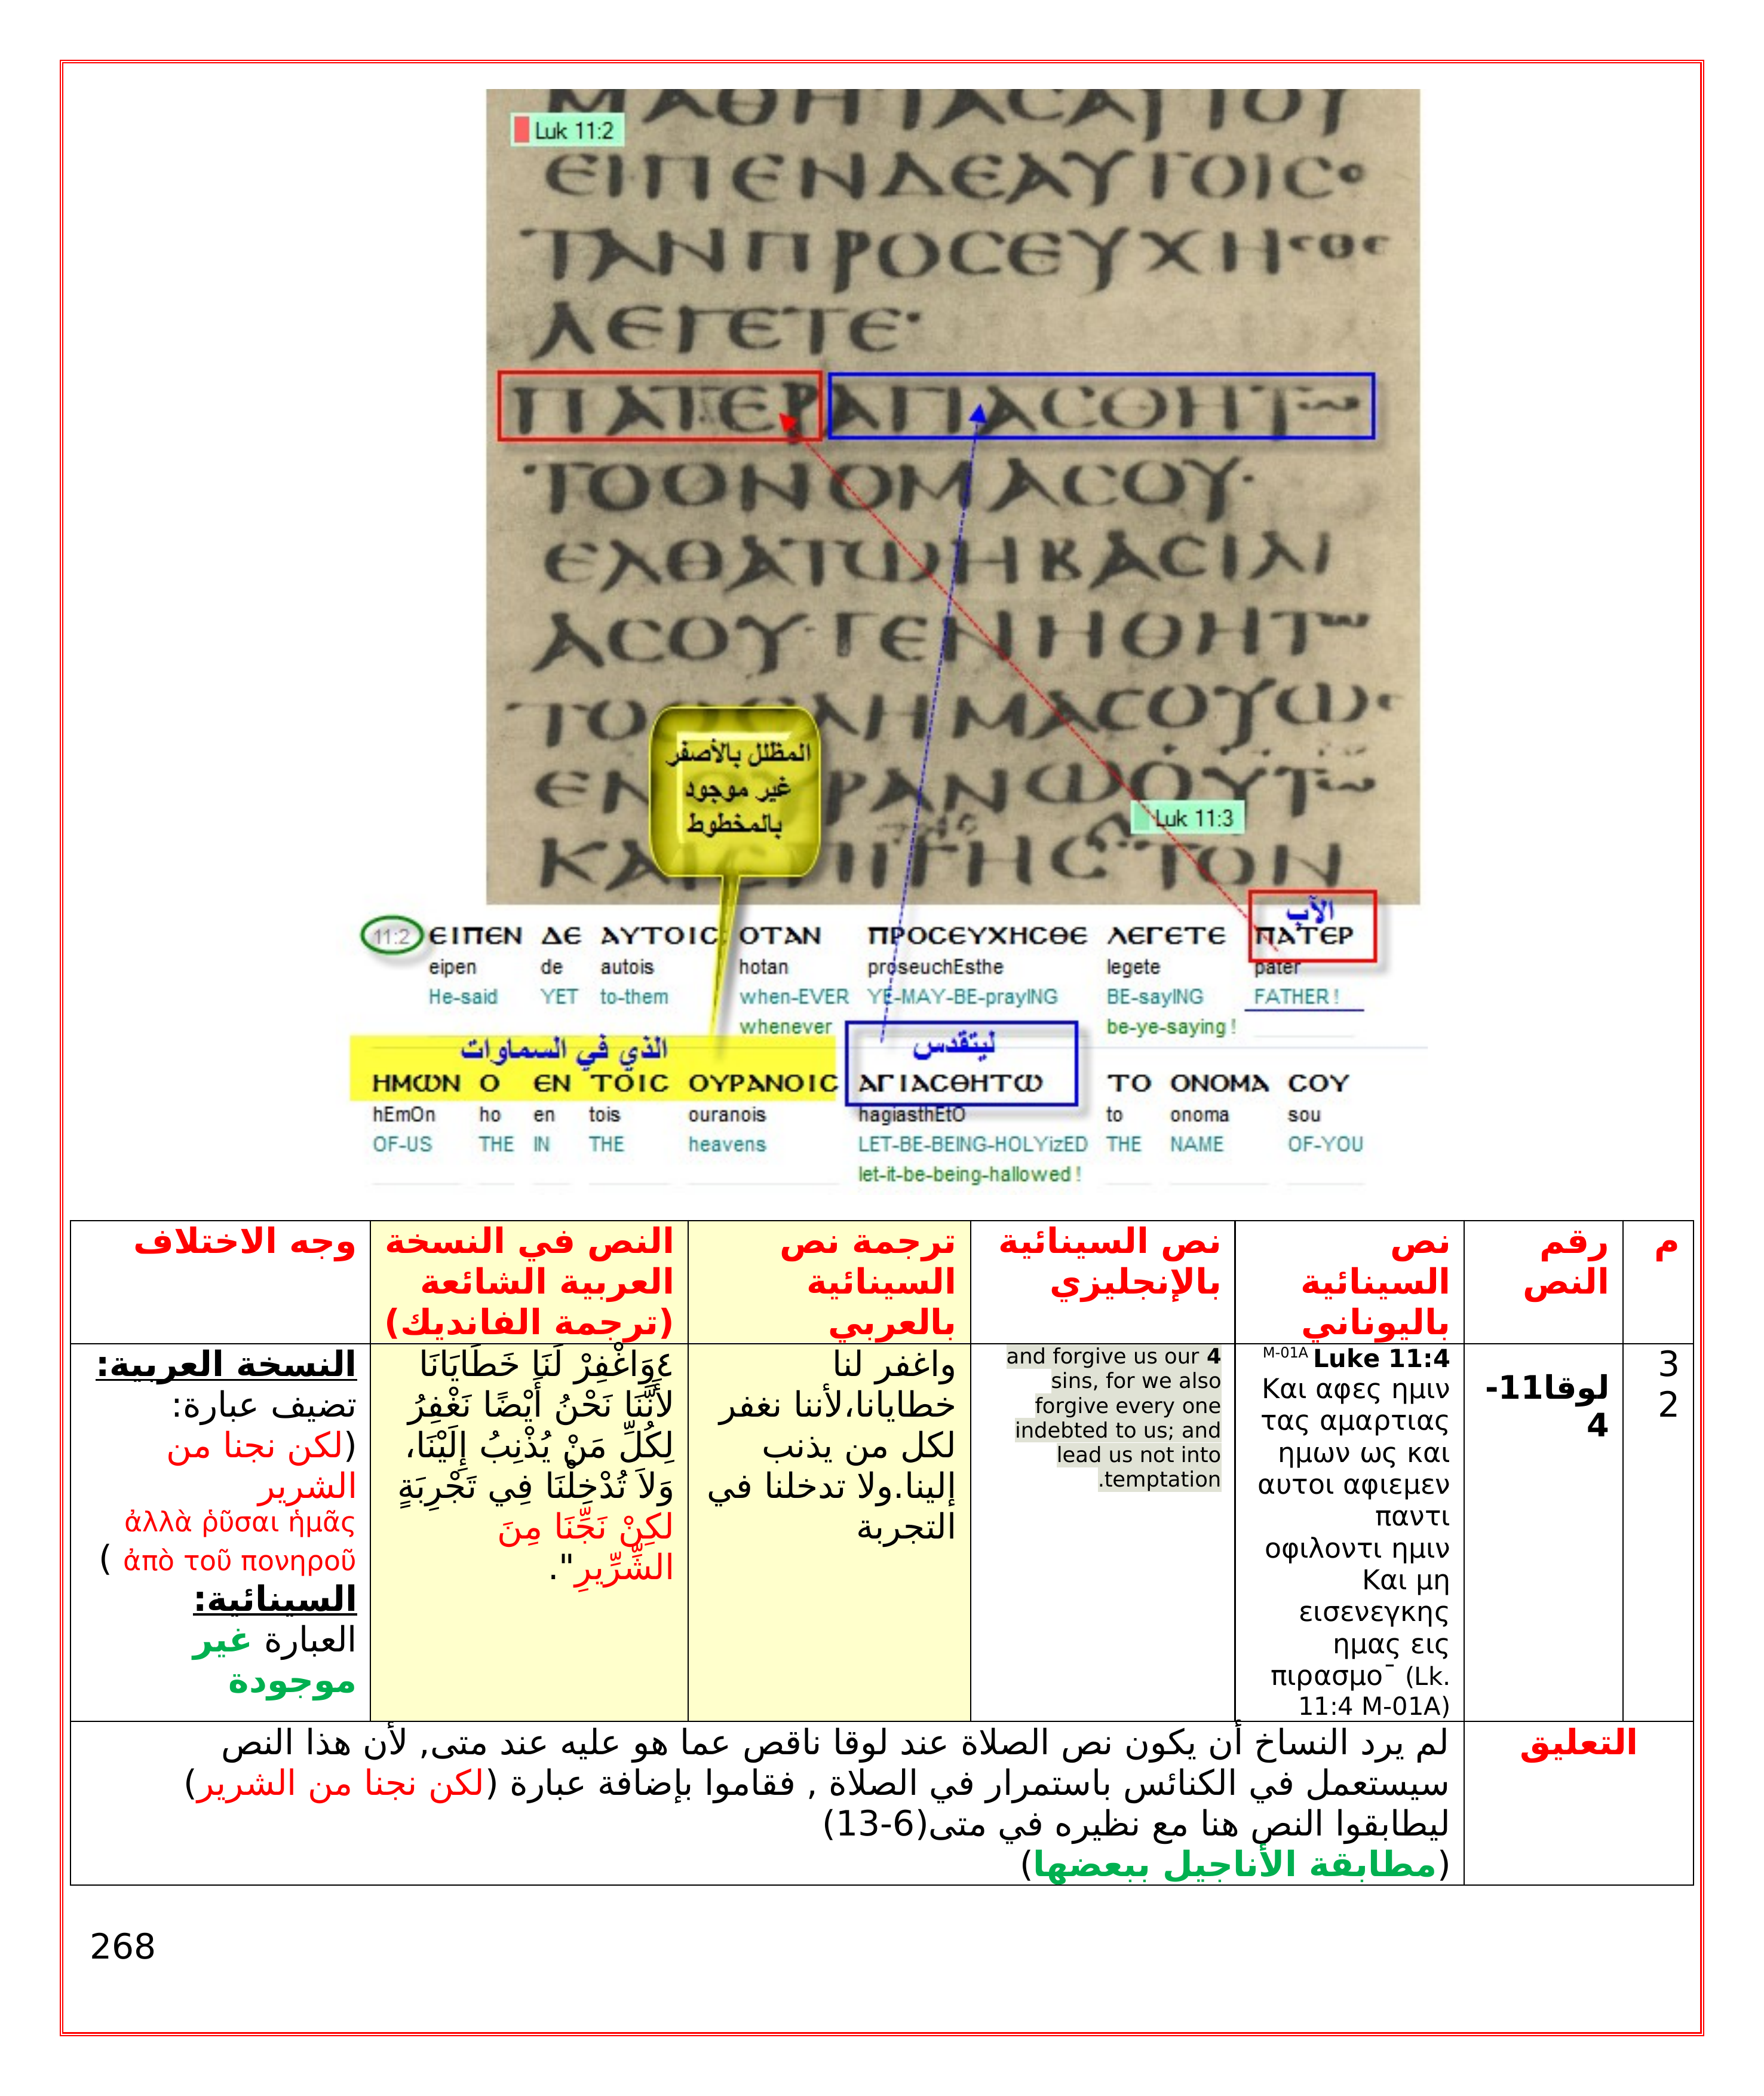 ΜΑΘΗΤΑCΑΥΤΟΥ
Luk 11:2
ЄΙΠЄΝΔЄΑΥΤΟΙCο
ΤΑΝΠΡΟCЄΥΧΗCΘЄ
ΛЄΓЄΤЄ·
ΠΑΤЄΡΑΓΙΑCΘΗΤω
ΤΟΟΝΟΜΑCΟΥ·
ЄΛΘΑΤωΗΒΑCΙΛΙ
ΑCΟΥ·ΓЄΝΗΘΗΤω
ΤΟ ΛΗΜΑCΟΥωC
ЄΝ ΡΑΝωΟΥΤω
المظلل بالأصفر
غير موجود
بالمخطوط
Luk 11:3
ΤΟΝ
الآب
11:2 ЄΙΠЄΝ ΔЄ ΑΥΤΟΙC ΟΤΑΝ ΠΡΟCЄΥΧΗCΘЄ ΛЄΓЄΤЄ ΠΑΤЄΡ
eipen de autois hotan proseuchEsthe legete pater
He-said YET to-them when-EVER YE-MAY-BE-prayING BE-sayING FATHER !
whenever be-ye-saying !
الذي في السماوات ليتقدس
ΗΜωΝ Ο ЄΝ ΤΟΙC ΟΥΡΑΝΟΙC ΑΓΙΑCΘΗΤω ΤΟ ΟΝΟΜΑ CΟΥ
hEmOn ho en tois ouranois hagiasthEtO to onoma sou
OF-US THE IN THE heavens LET-BE-BEING-HOLYizED THE NAME OF-YOU
let-it-be-being-hallowed !
م
رقم
النص
نص
السينائية
باليوناني
نص السينائية
بالإنجليزي
ترجمة نص
السينائية
بالعربي
النص في النسخة
العربية الشائعة
(ترجمة الفانديك)
وجه الاختلاف
3
2
لوقا11-
4
M-01A Luke 11:4
Και αφες ημιν
τας αμαρτιας
ημων ως και
αυτοι αφιεμεν
παντι
οφιλοντι ημιν
Και μη
εισενεγκης
ημας εις
πιρασμο¯ (Lk.
11:4 M-01A)
and forgive us our 4
sins, for we also
forgive every one
indebted to us; and
lead us not into
.temptation
واغفر لنا
خطايانا،لأننا نغفر
لكل من يذنب
إلينا.ولا تدخلنا في
التجربة
٤وَاغْفِرْ لَنَا خَطَايَانَا
لأَنَّنَا نَحْنُ أَيْضًا نَغْفِرُ
لِكُلِّ مَنْ يُذْنِبُ إِلَيْنَا،
وَلاَ تُدْخِلْنَا فِي تَجْرِبَةٍ
لكِنْ نَجِّنَا مِنَ
الشِّرِّيرِ".
النسخة العربية:
تضيف عبارة:
(لكن نجنا من
الشرير
ἀλλὰ ῥῦσαι ἡμᾶς
ἀπὸ τοῦ πονηροῦ )
السينائية:
العبارة غير
موجودة
التعليق
لم يرد النساخ أن يكون نص الصلاة عند لوقا ناقص عما هو عليه عند متى, لأن هذا النص
سيستعمل في الكنائس باستمرار في الصلاة , فقاموا بإضافة عبارة (لكن نجنا من الشرير)
ليطابقوا النص هنا مع نظيره في متى(6-13)
(مطابقة الأناجيل ببعضها)
268